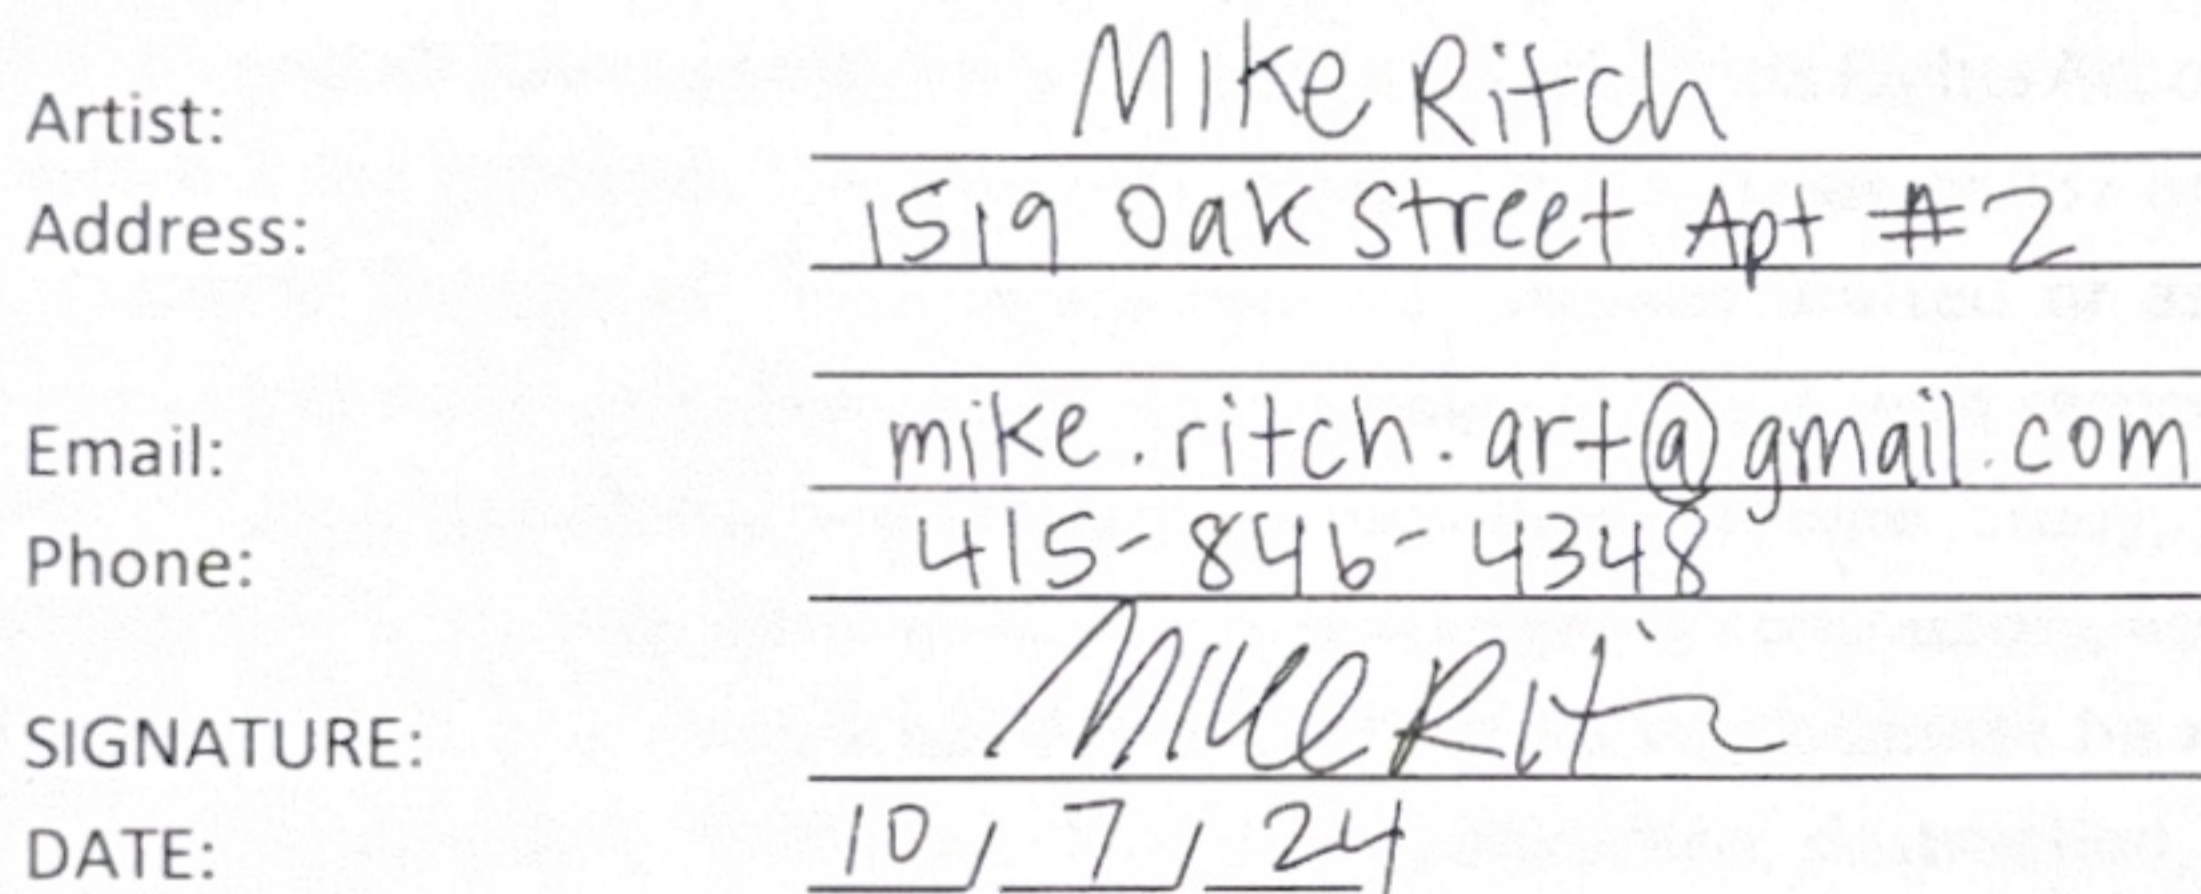 Artist: Mike Ritch
Address: 1519 Oak Street Apt #2
Email: mike.ritch.art@gmail.com
Phone: 415-846-4348
SIGNATURE: Mike Rit
DATE: 10/7/24